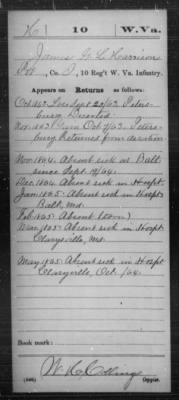 H | 10 | W. Va.
James H. L. Harrison
Pvt, Co. I, 10 Reg't W. Va. Infantry.
Appears on Returns as follows:
Oct 1863 Loss Sept 20/63. Peters-
burg Deserted.
Nov. 1863 Gain Oct 7/63. Peters-
burg Returned from desertion
Nov. 1864. Absent sick at Balt
since Sept. 19/64.
Dec. 1864. Absent sick in Hospt.
Jan. 1865. Absent sick in Hospt
Balt, Md.
Feb. 1865 Absent
Mar. 1865. Absent sick in Hospt
Clarysville, Md.
May 1865. Absent sick in Hospt
Clarysville, Oct. /64.
Book mark:
(546) Copyist.